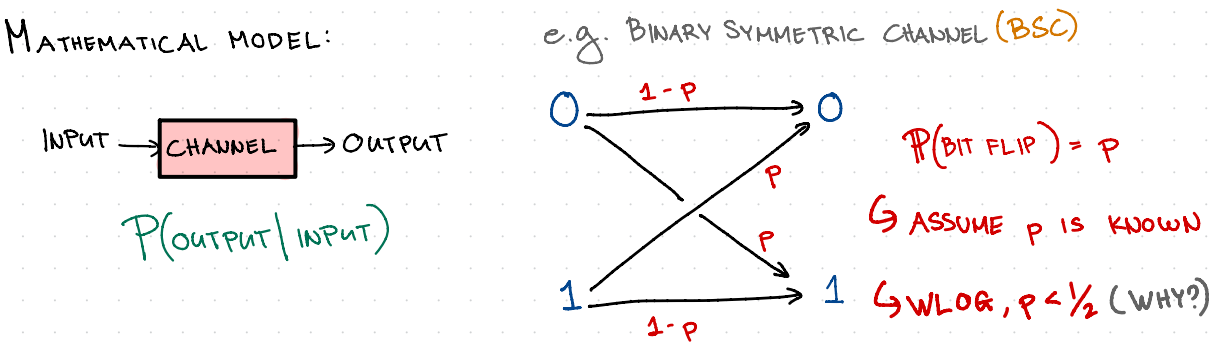 MATHEMATICAL MODEL:
INPUT → CHANNEL → OUTPUT
P(OUTPUT | INPUT)
e.g. BINARY SYMMETRIC CHANNEL (BSC)
0 1-p 0
p
p
1 1-p 1
ℙ(BIT FLIP) = p
↳ ASSUME p IS KNOWN
↳ WLOG, p < 1/2 (WHY?)